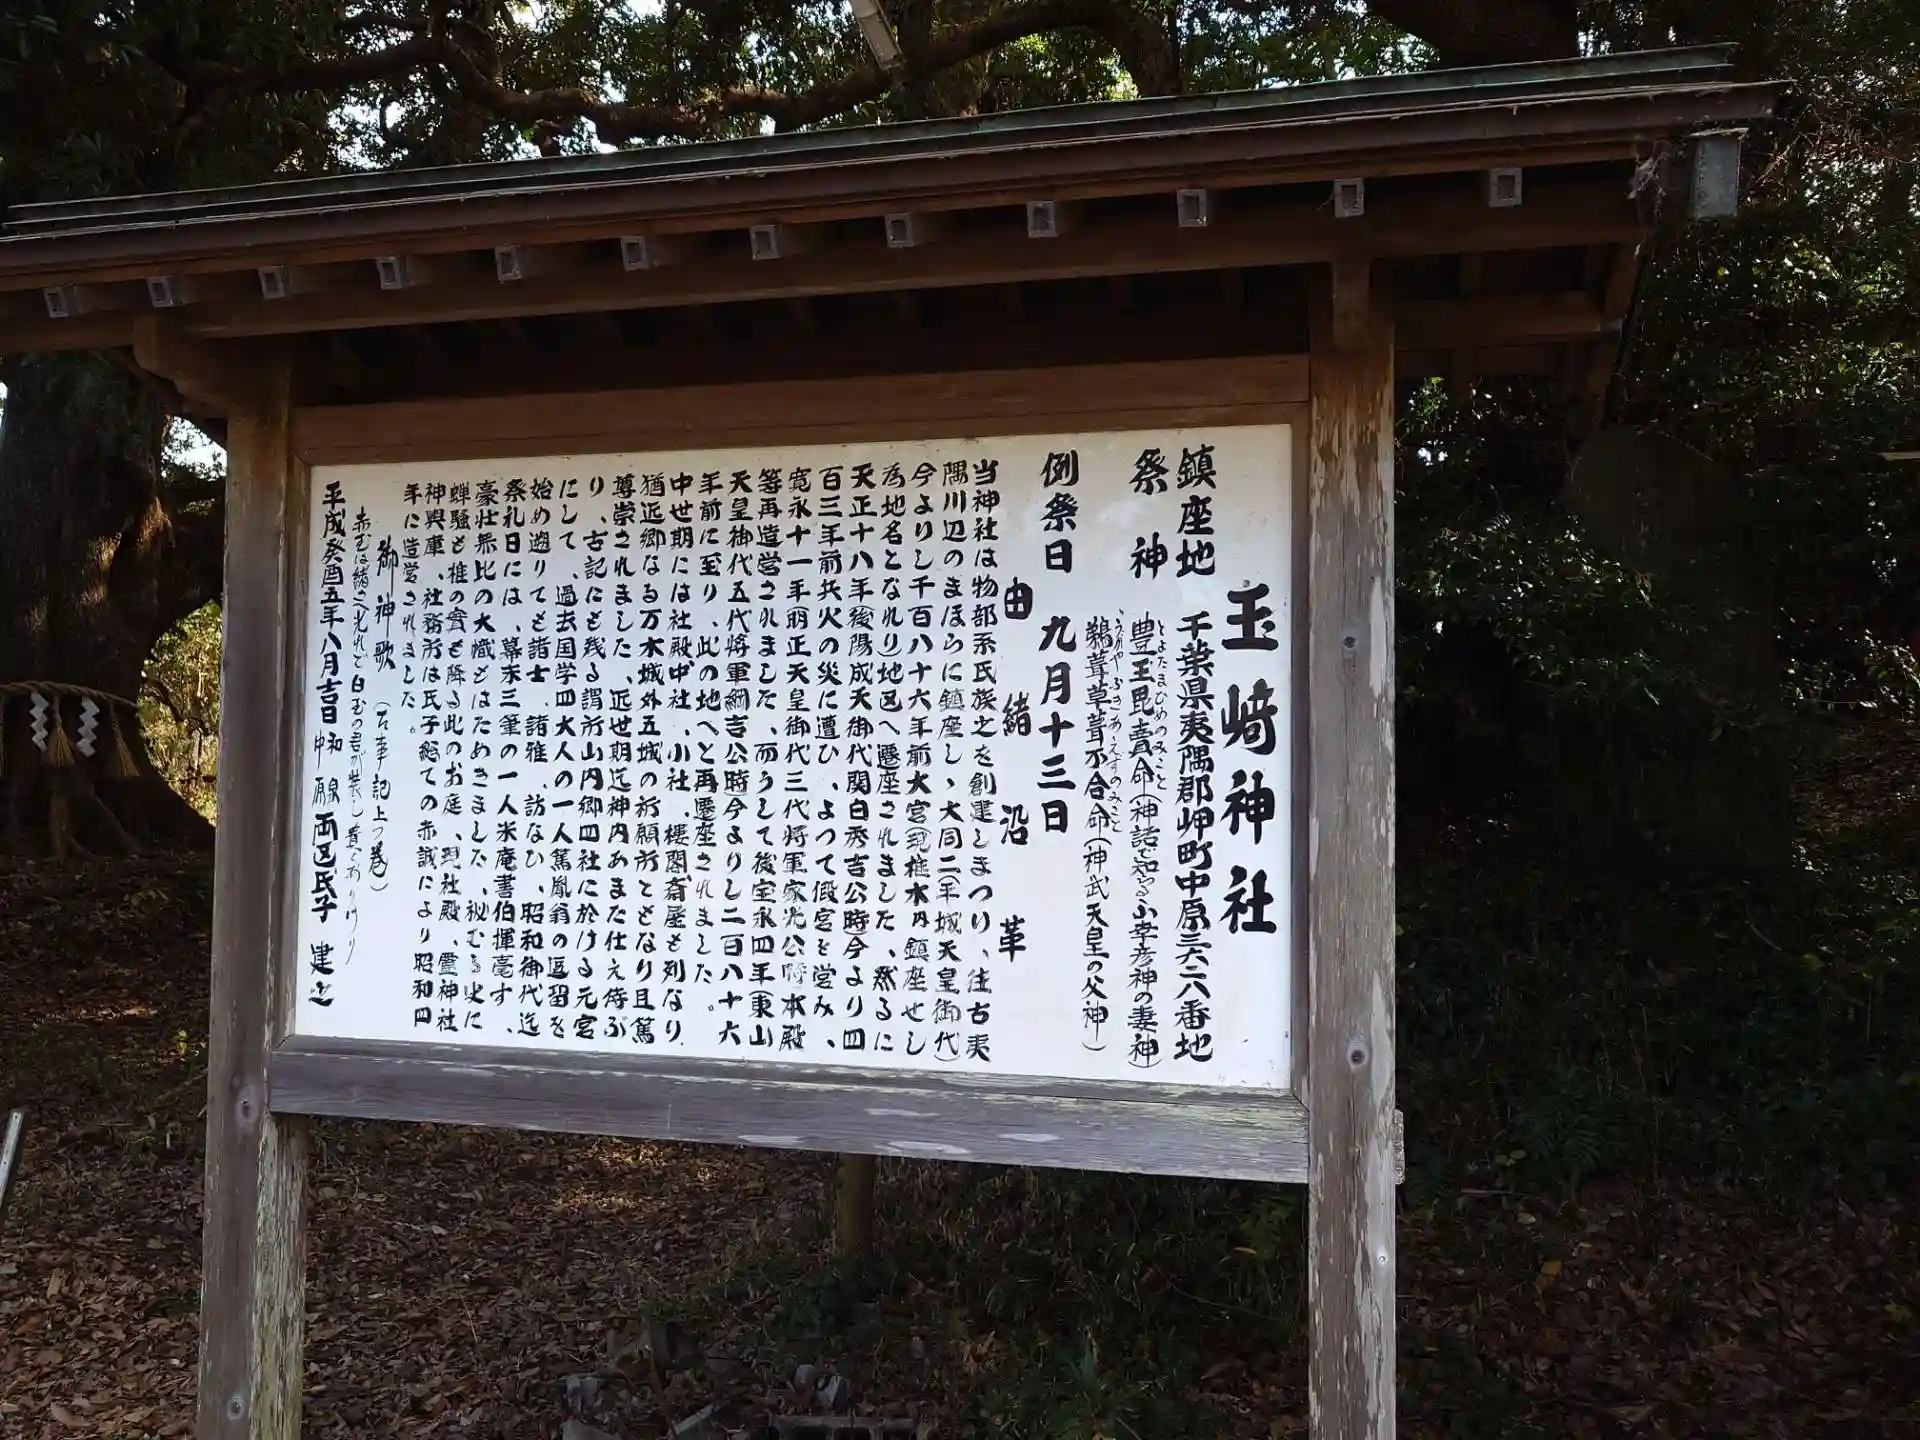 玉﨑神社
鎮座地 千葉県夷隅郡岬町中原三六二六番地
祭神 豊玉毘賣命(神話で知らる山幸彦神の妻神)
とよたまひめのみこと
鵜葺草葺不合命(神武天皇の父神)
うがやふきあへずのみこと
例祭日 九月十三日
由緒沿革
当神社は物部系氏族之を創建しまつり、往古夷
隅川辺のまほらに鎮座し、大同二(平城天皇御代)
今よりし千百八十六年前大宮(現椎木内鎮座せし
為地名となれり)地区へ遷座されました、然るに
天正十八年(後陽成天御代関白秀吉公時)今より四
百三年前兵火の災に遭ひ、よつて假宮を営み、
寛永十一年(明正天皇御代三代将軍家光公時)本殿
等再造営されました、而うして後宝永四年(東山
天皇御代五代将軍綱吉公時)今よりし二百八十六
年前に至り、此の地へと再遷座されました。
中世期には社殿中社、小社、樓閣斎屋も列なり
猶近郷なる万木城外五城の祈願所ともなり且篤
尊崇されました、近世期迄神内あまた仕え侍ぶ
り、古記にも残る謂所山内郷四社に於ける元宮
にして、過去国学四大人の一人篤胤翁の逗留を
始め遡りても諸士、諸雅、訪なひ、昭和御代迄
祭礼日には、幕末三筆の一人米庵書伯揮毫す、
豪壮無比の大幟もはためきました、秘むる史に
蝉騒も椎の實も降る此のお庭、現社殿、霊神社
神輿庫、社務所は氏子総ての赤誠により昭和四
年に造営されました。
御神歌 (古事記上つ巻)
赤玉は緒さへ光れど白玉の君が装し貴くありけり
平成癸酉五年八月吉日 和泉 中原 両区氏子 建之